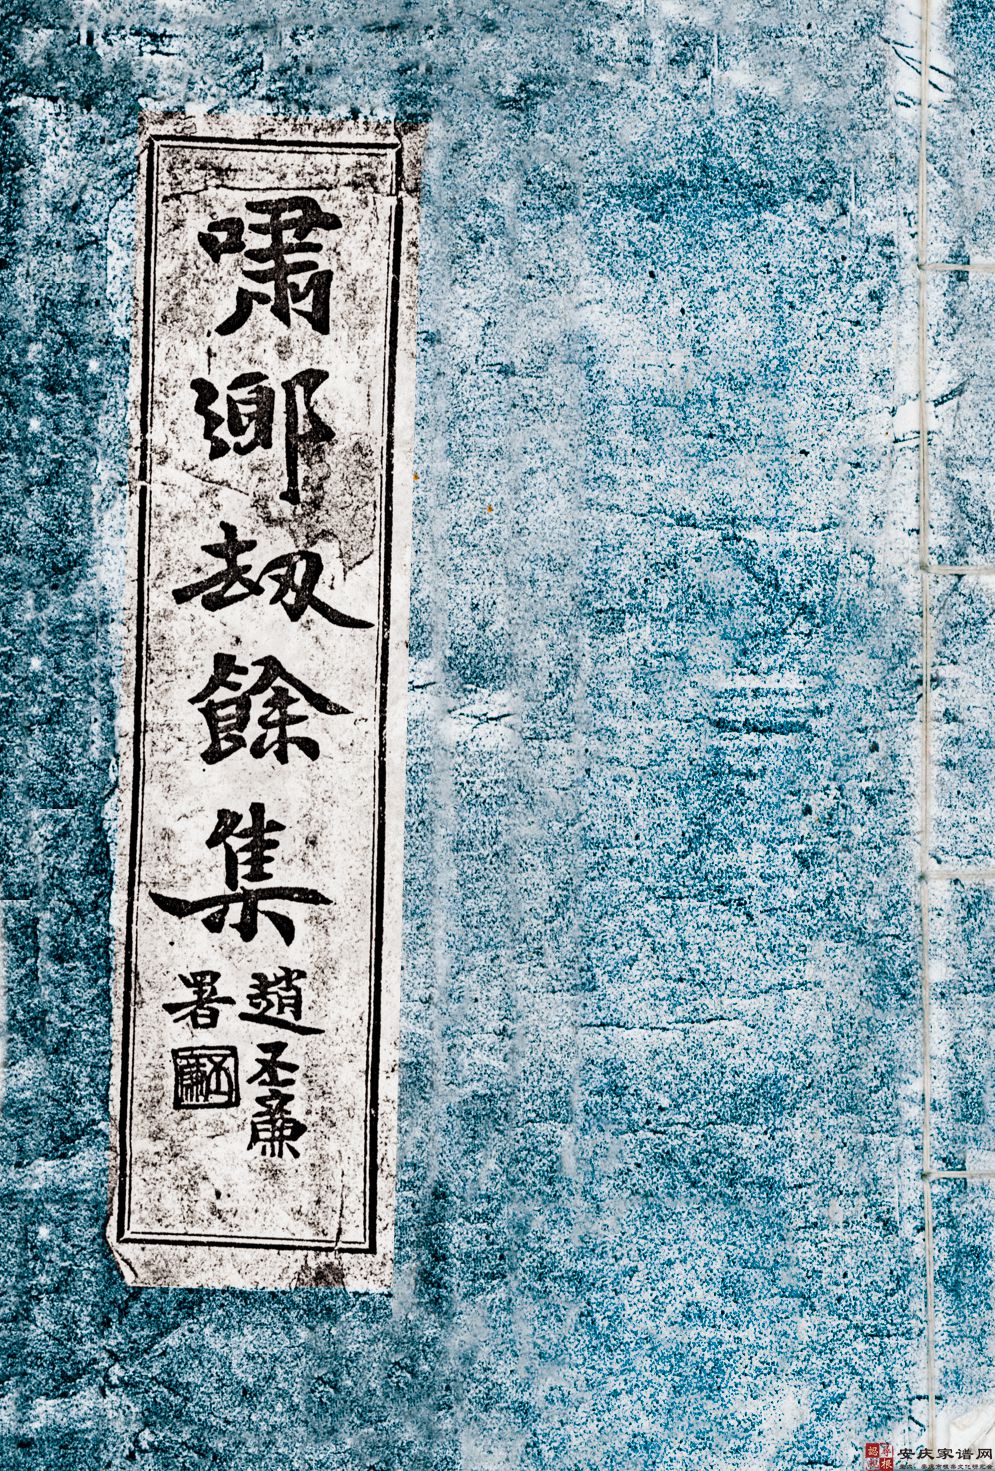 嘯鄉劫餘集
趙丕廉
署
丕廉
安庆家谱网